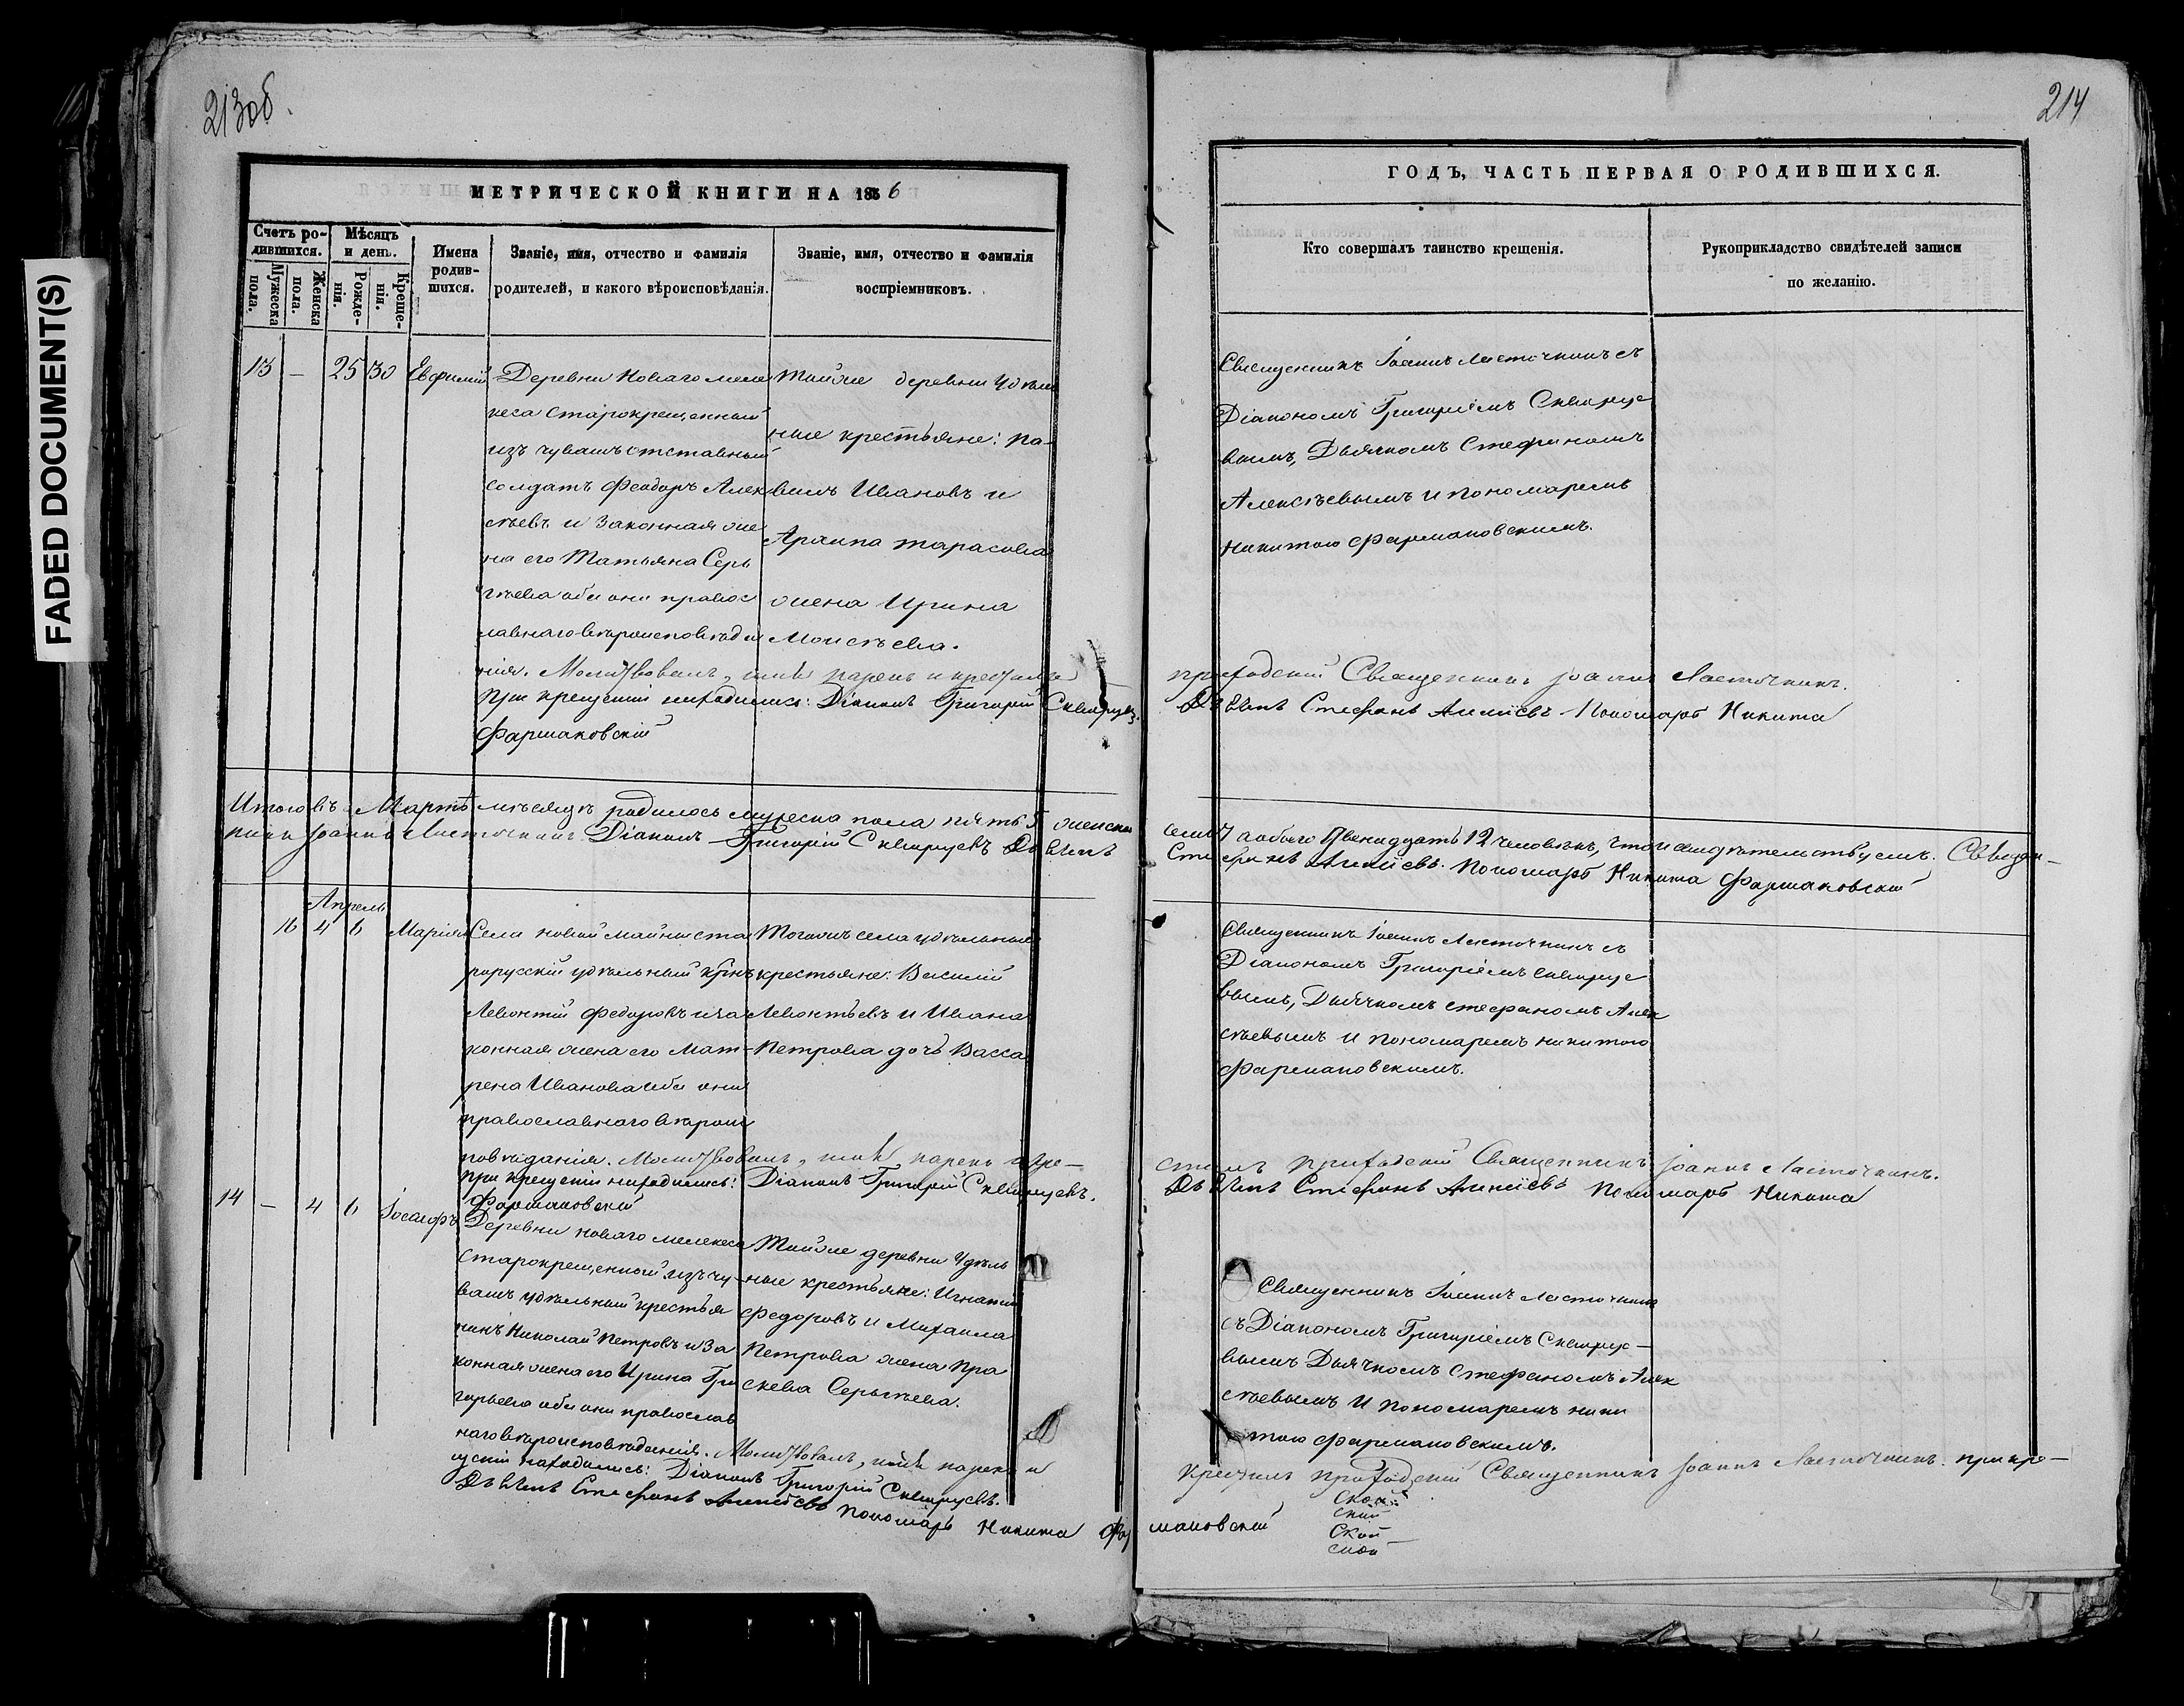 FADED DOCUMENT(S)
213об.
МЕТРИЧЕСКОЙ КНИГИ НА 1856
Счетъ ро-
дившихся.
Мужеска
пола.
Женска
пола.
Мѣсяцъ
и день.
Рожде-
нія.
Креще-
нія.
Имена
родив-
шихся.
Званіе, имя, отчество и фамилія
родителей, и какого вѣроисповѣданія.
Званіе, имя, отчество и фамилія
воспріемниковъ.
13 — 25 30 Евфимій
Деревни Новаго меле
кеса старокрещенный
изъ чувашъ отставный
солдатъ Феодоръ Алек
сѣевъ и законная же
на его Татьяна Сер
гѣева оба они правос
лавнаго вѣроисповѣда
нія. Молитвовалъ, имя нарекъ и крестилъ
При крещеніи находились: Діаконъ Григорій Скварцевъ.
Фармаковскій
Тойже деревни Удѣль
ные крестьяне: Па-
велъ Ивановъ и
Архипа Тарасова
жена Ирина
Моисѣева.
Итого въ Мартѣ мѣсяцѣ родилось мужеска пола пять 5 женска
Іоаннъ Ласточкинъ Діаконъ Григорій Скварцевъ
Апрель
16 4 6 Марія
Села новой майны ста
рорусскій удѣльный кр̃нъ
Левонтій Федоровъ и за
конная жена его Мат-
рена Иванова оба они
православнаго вѣроис
повѣданія. Молитвовалъ, имя нарекъ и кре-
При крещеніи находились: Діаконъ Григорій Скварцевъ.
Фармаковскій
Тогожъ села удѣльные
крестьяне: Василій
Левонтьевъ и Ивана
Петрова дочь Васса
14 — 4 6 Іосифъ
Деревни новаго мелекеса
Старокрещенный изъ чу-
вашъ удѣльный крестья
нинъ Николай Петровъ и за
конная жена его Ирина Гри
горьева оба они православ
наго вѣроисповѣданія. Молитвовалъ, имя нарекъ и
щеніи находились: Діаконъ Григорій Скварцевъ.
Стефанъ Алексѣевъ Пономарь Никита Фар
Тойже деревни Удѣль
ные крестьяне: Игнатій
Федоровъ и Михаила
Петрова жена Пра
скева Сергѣева.
214
ГОДЪ, ЧАСТЬ ПЕРВАЯ О РОДИВШИХСЯ.
Кто совершалъ таинство крещенія.
Рукоприкладство свидѣтелей записи
по желанію.
Священникъ Іоаннъ Ласточкинъ съ
Діакономъ Григоріемъ Скварце
вымъ, Дьячкомъ Стефаномъ
Алексѣевымъ и пономаремъ
Никитою Фармаковскимъ.
приходскій Священникъ Іоаннъ Ласточкинъ.
Стефанъ Алексѣевъ Пономарь Никита
семь 7 а обоего Двенадцать 12 человѣкъ, что и свидѣтельствуемъ. Священ-
Стефанъ Алексѣевъ. Пономарь Никита Фармаковскій
Священникъ Іоаннъ Ласточкинъ съ
Діакономъ Григоріемъ Скварце
вымъ, Дьячкомъ Стефаномъ Алек
сѣевымъ и пономаремъ никитою
Фармаковскимъ.
стилъ приходскій Священникъ Іоаннъ Ласточкинъ.
Стефанъ Алексѣевъ Пономарь Никита
Священникъ Іоаннъ Ласточкинъ
съ Діакономъ Григоріемъ Скварце-
вымъ Дьячкомъ Стефаномъ Алек
сѣевымъ и пономаремъ ники
тою Фармаковскимъ.
крестилъ приходскій Священникъ Іоаннъ Ласточкинъ. при кре-
маковскій
ской
ской